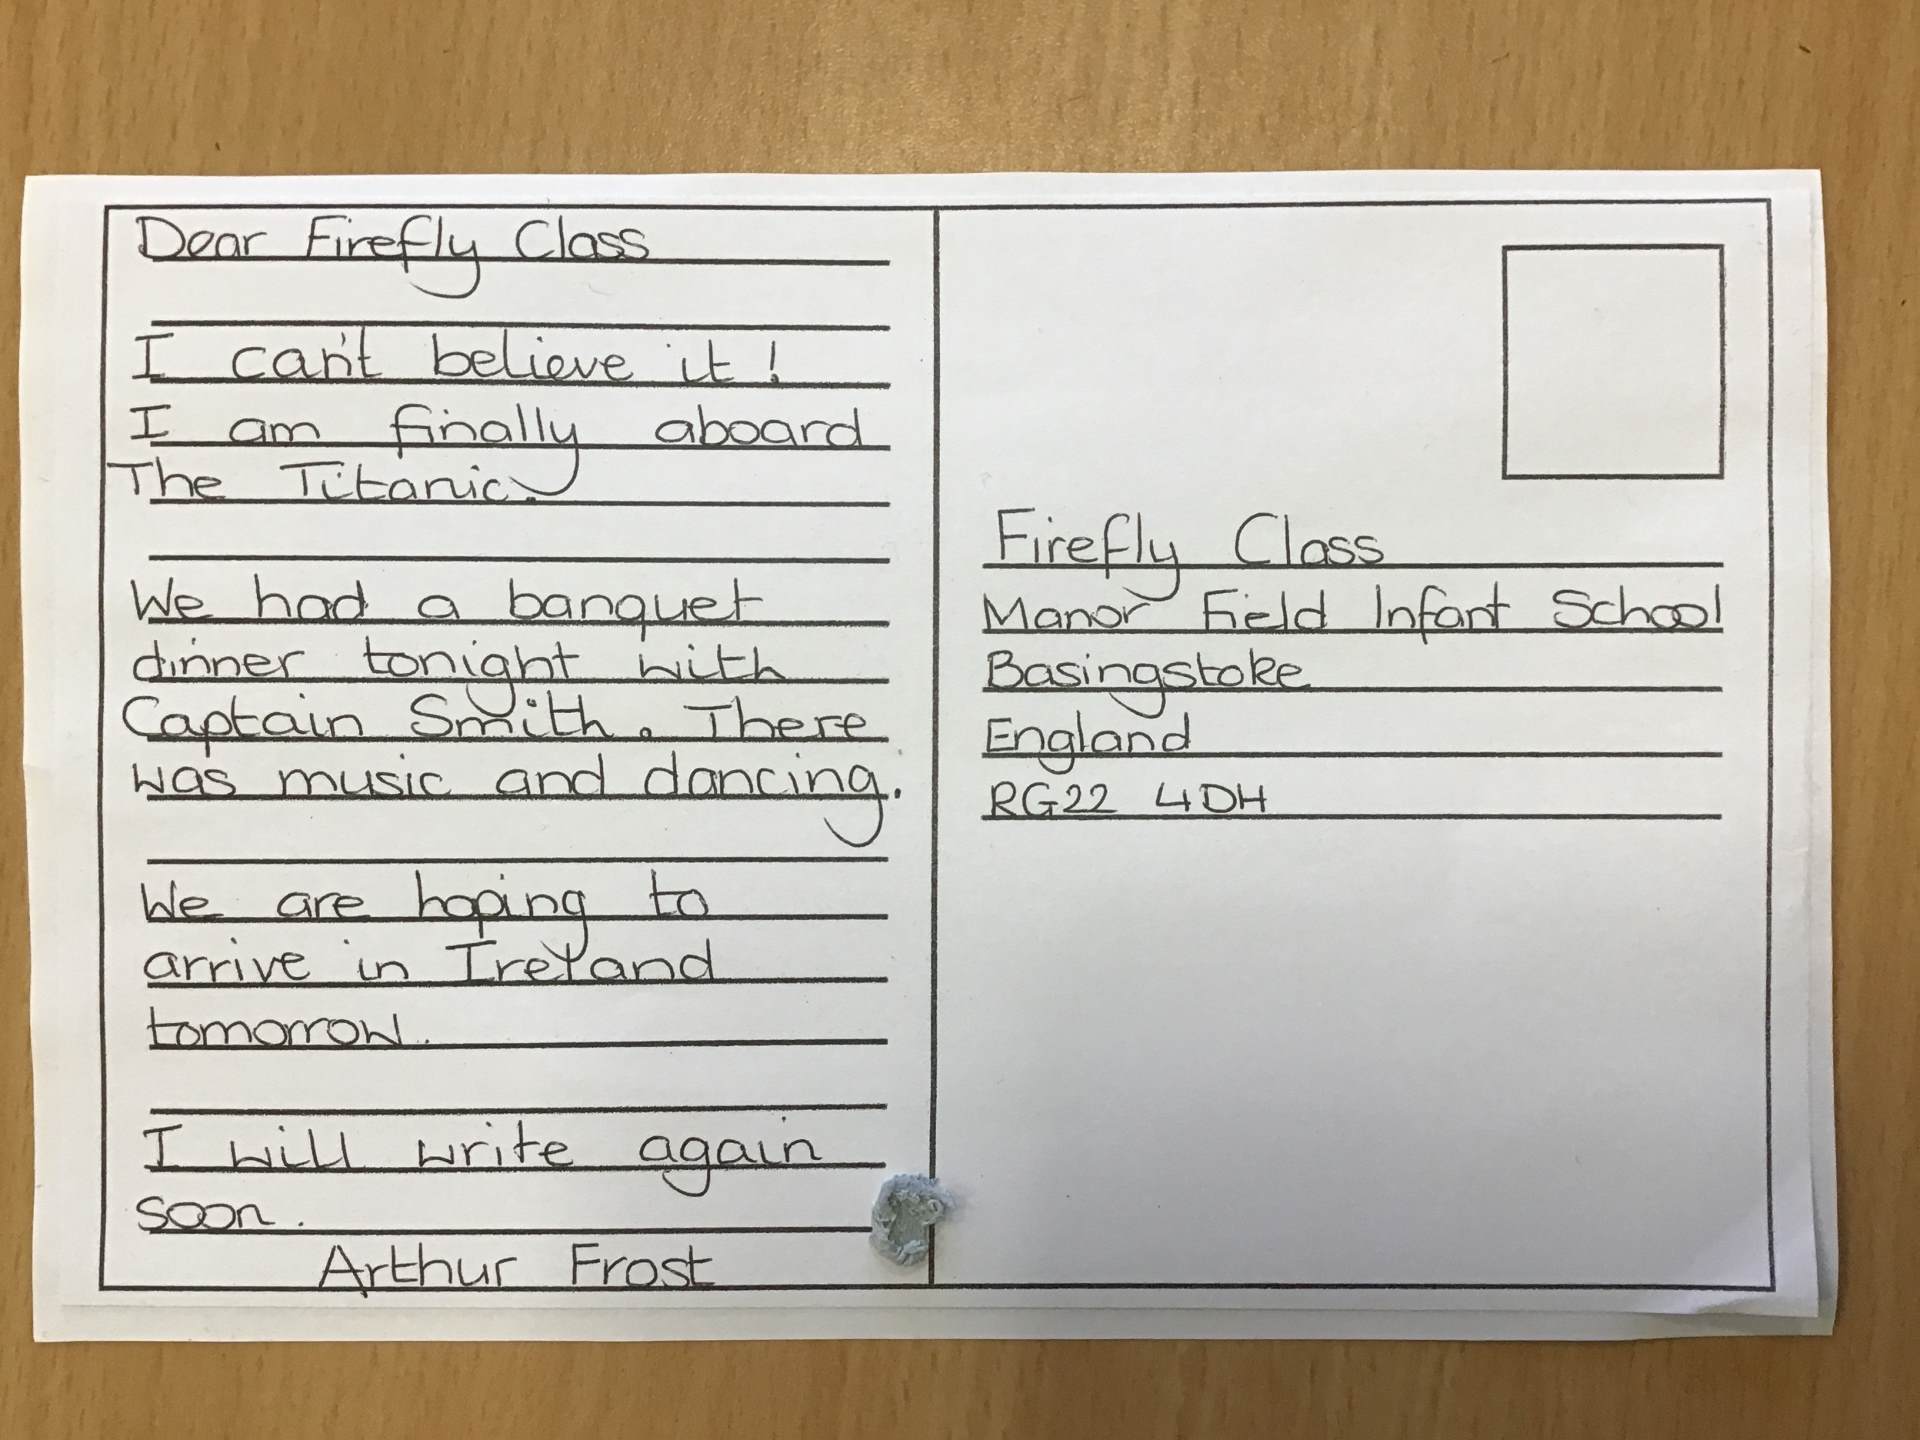 Dear Firefly Class
I can't believe it!
I am finally aboard
The Titanic.
We had a banquet
dinner tonight with
Captain Smith. There
was music and dancing.
We are hoping to
arrive in Ireland
tomorrow.
I will write again
soon.
Arthur Frost
Firefly Class
Manor Field Infant School
Basingstoke
England
RG22 4DH